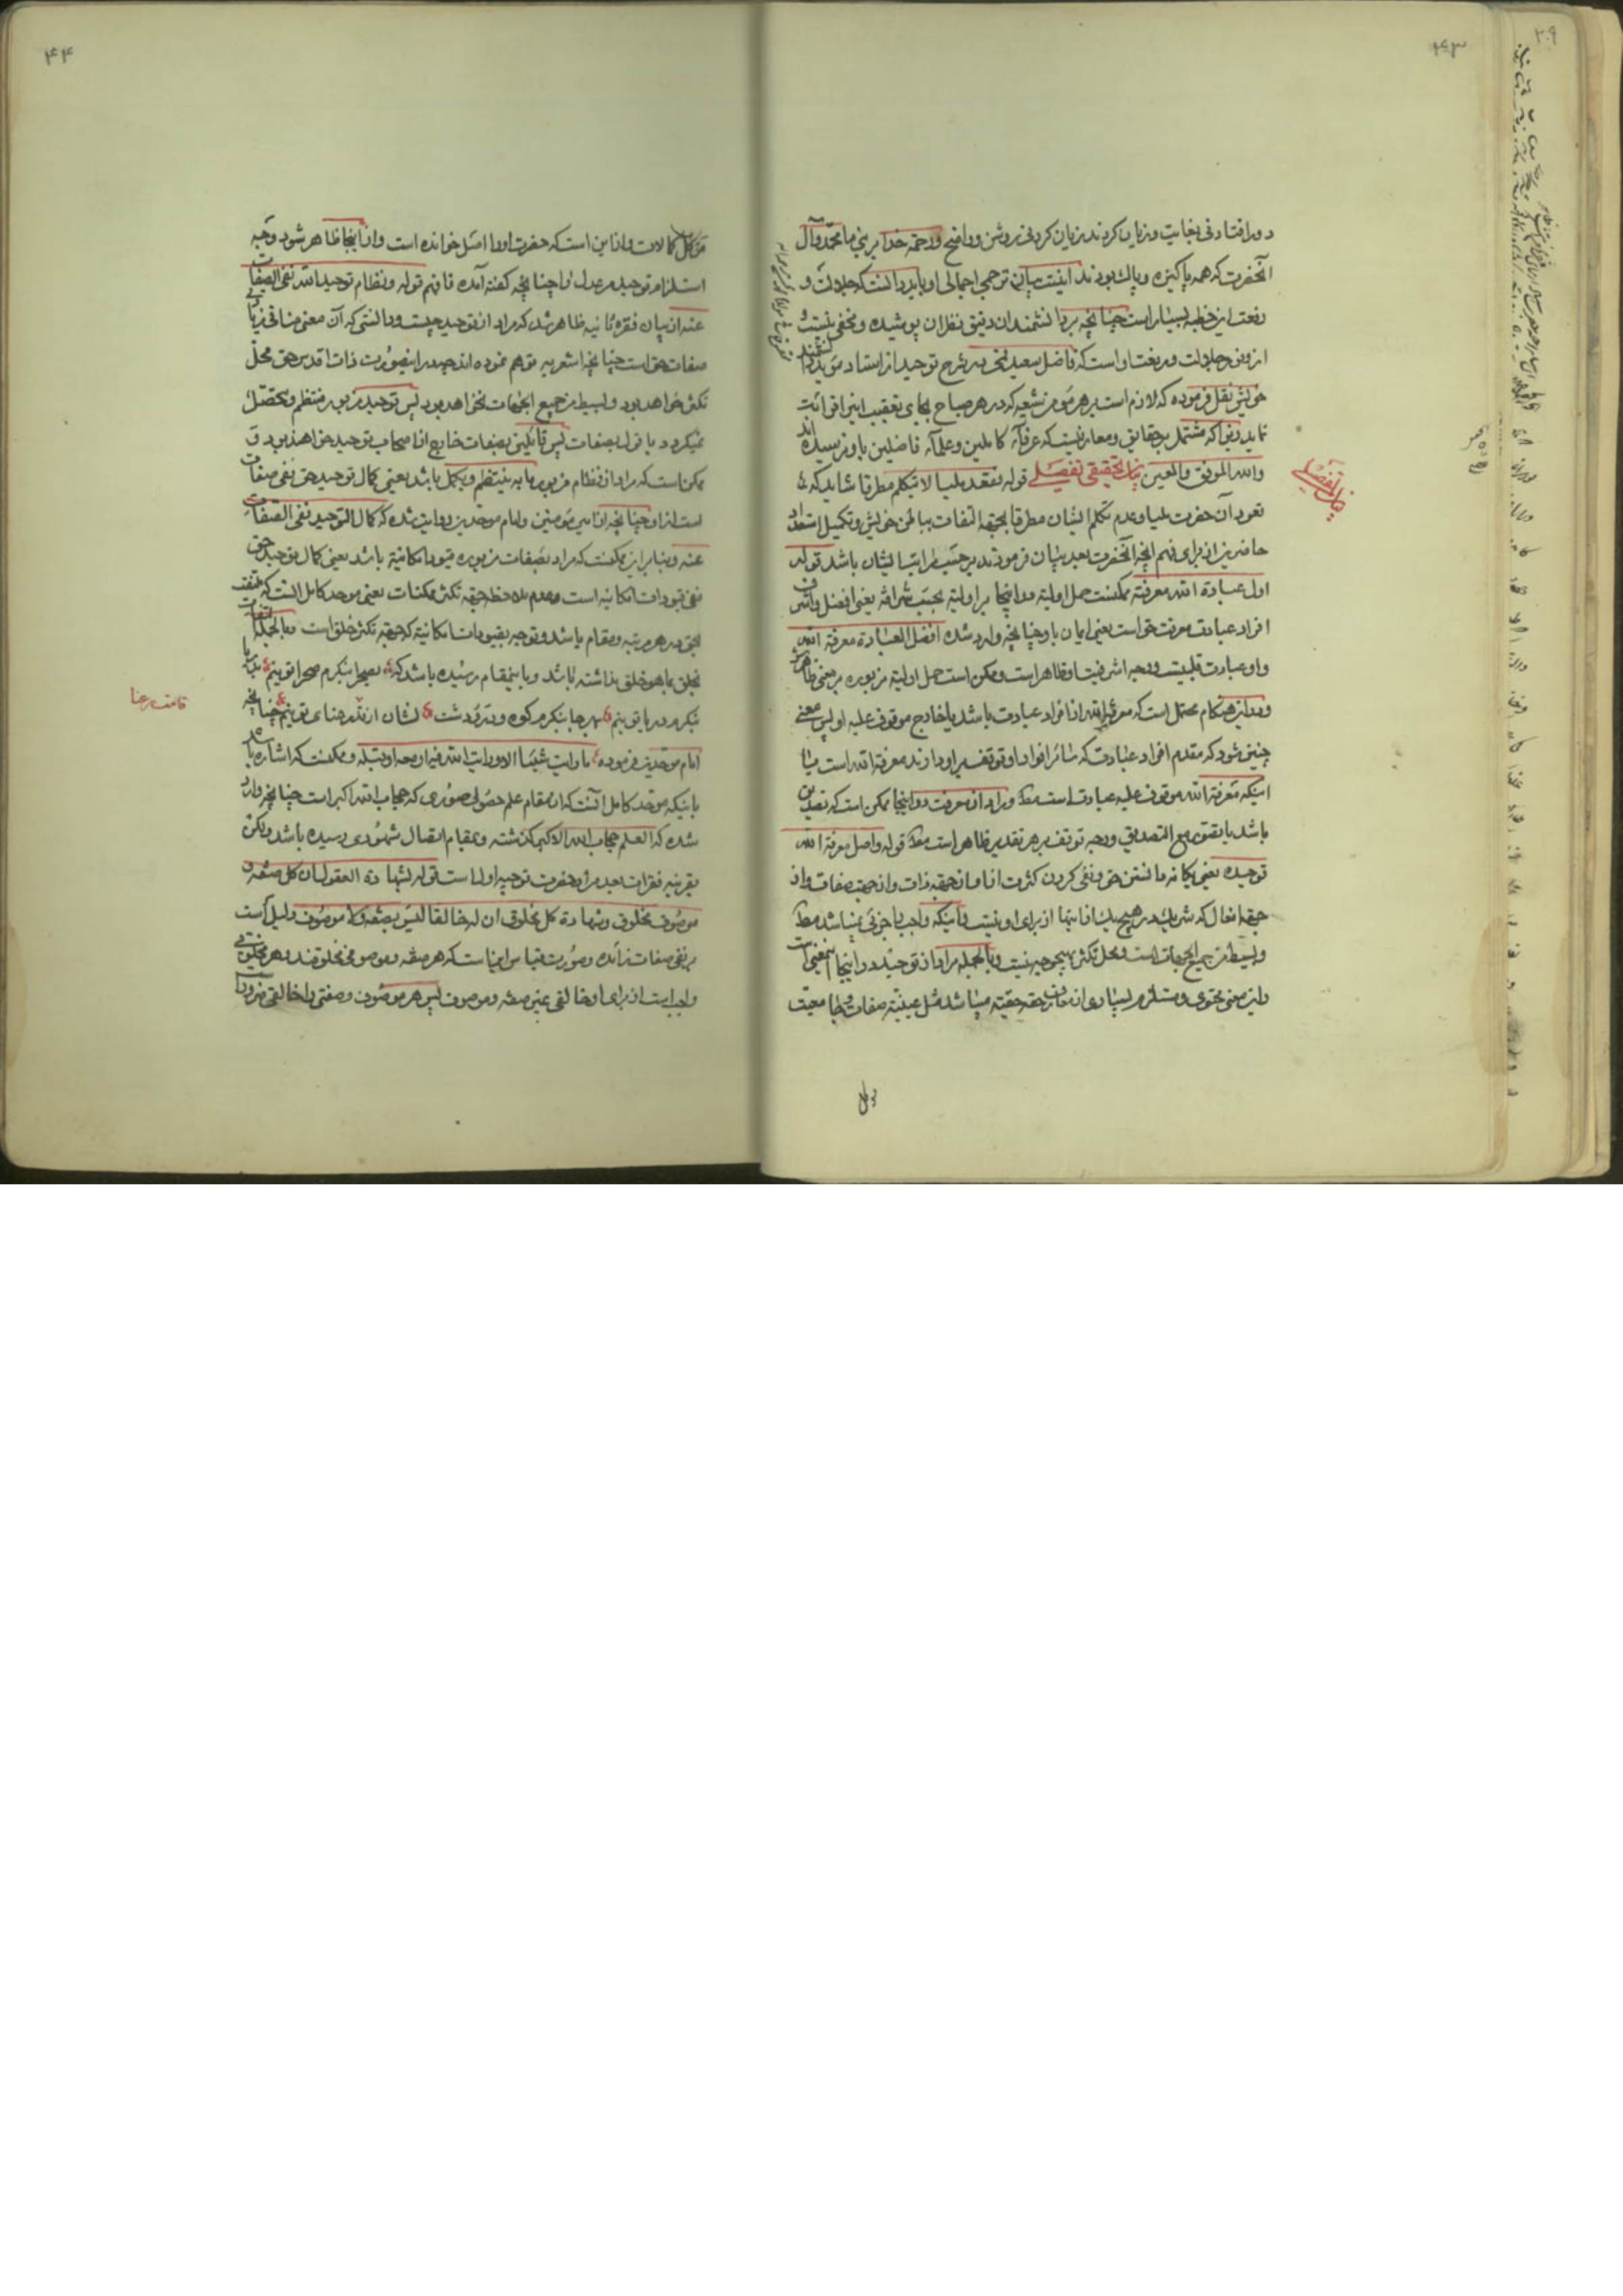 ۴۳
دور افتادنی بغایت و زیان کردند زیان کردنی روشن و واضح و رحمة خدا بر نبی ما محمد و آل
آنحضرت که همه پاکیزه و پاک بودند اینست بیان ترجمی اجمالی او باید دانست که جلالت و
رفعت این خطبه بسیار است چنانچه بر دانشمندان دقیق نظران پوشیده و مخفی نیست و
از وفور جلالت و رفعت او است که فاضل سعید قمی در شرح توحید از استاد
خویش نقل فرموده که لازم است بر هر مؤمن شیعه که در هر صباح بجای تعقیب این را قرائت
نماید زیرا که مشتمل بر حقایق و معارفیست که عرفآء کاملین و علمآء فاضلین باو نرسیده اند
والله الموفق والمعین بیان تحقیقی تفصیلی قوله فقعد ملیا لا یتکلم مطرقا شاید که
قعود آن حضرت ملیا و عدم تکلم ایشان مطرقا بجهة التفات بباطن خویش و تکمیل استعداد
حاضرین از برای فهم آنچه آنحضرت بعد بیان فرمودند بر حسب مراتب ایشان باشد قوله
اول عبادة الله معرفته ممکنست حمل اولیة در اینجا بر اولیة بحسب شرافة یعنی افضل و اشرف
افراد عبادت معرفت حق است یعنی ایمان باو چنانچه وارد شده افضل العبادة معرفة الله
و او عبادت قلبیست و وجه اشرفیت او ظاهر است و ممکن است حمل اولیة مزبوره بر معنی ظاهرش
و در این هنکام محتمل است که معرفة الله از افراد عبادت باشد یا خارج موقوف علیه او پس معنی
چنین شود که مقدم افراد عبادت که سائر افراد او توقف بر او دارند معرفة الله است یا
اینکه معرفة الله موقوف علیه عبادت است مط و مراد از معرفت در اینجا ممکن است که تصدیق
باشد یا تصور مع التصدیق و وجه توقف بر هر تقدیر ظاهر است مط قوله و اصل معرفة الله
توحیده یعنی یکانه دانستن حق و نفی کردن کثرت از او از جهة ذات و از جهة صفات و از
جهة افعال که شریک در هیچ یک از اینها از برای او نیست با اینکه واجب با جزئی نمیباشد مط
و بسیط من جمیع الجهات است و محل تکثر بهیچوجه نیست و بالجمله مراد از توحید در اینجا اینمعنی است
و این معنی محتوی و مستلزم بسیاری از معارف حقه حقیقة میباشد مثل عینیة صفات و جامعیت
مر کل
بیان تفصیلی
۴۴
مر کل کمالات و از این است که حضرت او را اصل خوانده است و از اینجا ظاهر شود وجه
استلزام توحید مر عدل را چنانچه گفته آمد فافهم قوله و نظام توحید الله نفی الصفات
عنه از بیان فقره ثانیه ظاهر شد که مراد از توحید چیست و دانستی که آن معنی منافی زیادتی
صفات حق است چنانچه اشعریه توهم نموده اند چه در اینصورت ذات اقدس حق محل
تکثر خواهد بود و بسیط من جمیع الجهات نخواهد بود پس توحید مزبور منتظم و محصل
نمیکردد با قول بصفات پس قائلین بصفات خارج از اصحاب توحید خواهند بود و
ممکن است که مراد از نظام مزبور ما به ینتظم و یکمل باشد یعنی کمال توحید حق نفی صفات
است از او چنانچه از امیر مؤمنین و امام موحدین روایت شده که کمال التوحید نفی الصفات
عنه و بنابر این ممکنست که مراد بصفات مزبوره قیود امکانیة باشد یعنی کمال توحید حق
نفی قیودات امکانیه است و عدم ملاحظه جهة تکثر ممکنات یعنی موحد کامل آنست که ملتفت
بحق در هر مرتبه و مقام باشد و توجه بقیودات امکانیة که جهة تکثر خلق است و بالجمله التفات
بخلق بما هو خلق نداشته باشد و باینمقام رسیده باشد که بصحرا بنکرم صحرا تو بینم بدریا
بنکرم دریا تو بینم بهر جا بنکرم کوه و در و دشت نشان از قد رعنای تو بینم چنانچه
امام موحدین فرموده ما رایت شیئا الا و رایت الله فیه او معه او قبله و ممکنست که اشاره باشد
باینکه موحد کامل آنست که از مقام علم حصولی صوری که حجاب الله اکبر است چنانچه وارد
شده که العلم حجاب الله الاکبر گذشته و بمقام اتصال شهودی رسیده باشد ولکن
بقرینه فقرات بعد مراد حضرت توجیه اول است قوله لشهادة العقول ان کل صفة و
موصوف مخلوق و شهادة کل مخلوق ان له خالقا لیس بصفة ولا موصوف دلیل است
بر نفی صفات زائده و صورت قیاس اینست که هر صفة و موصوفی مخلوقند و هر مخلوقی
واجب است از برای او خالقی غیر صفة و موصوف پس هر موصوف و صفتی را خالقی ضرور
قامت رعنا